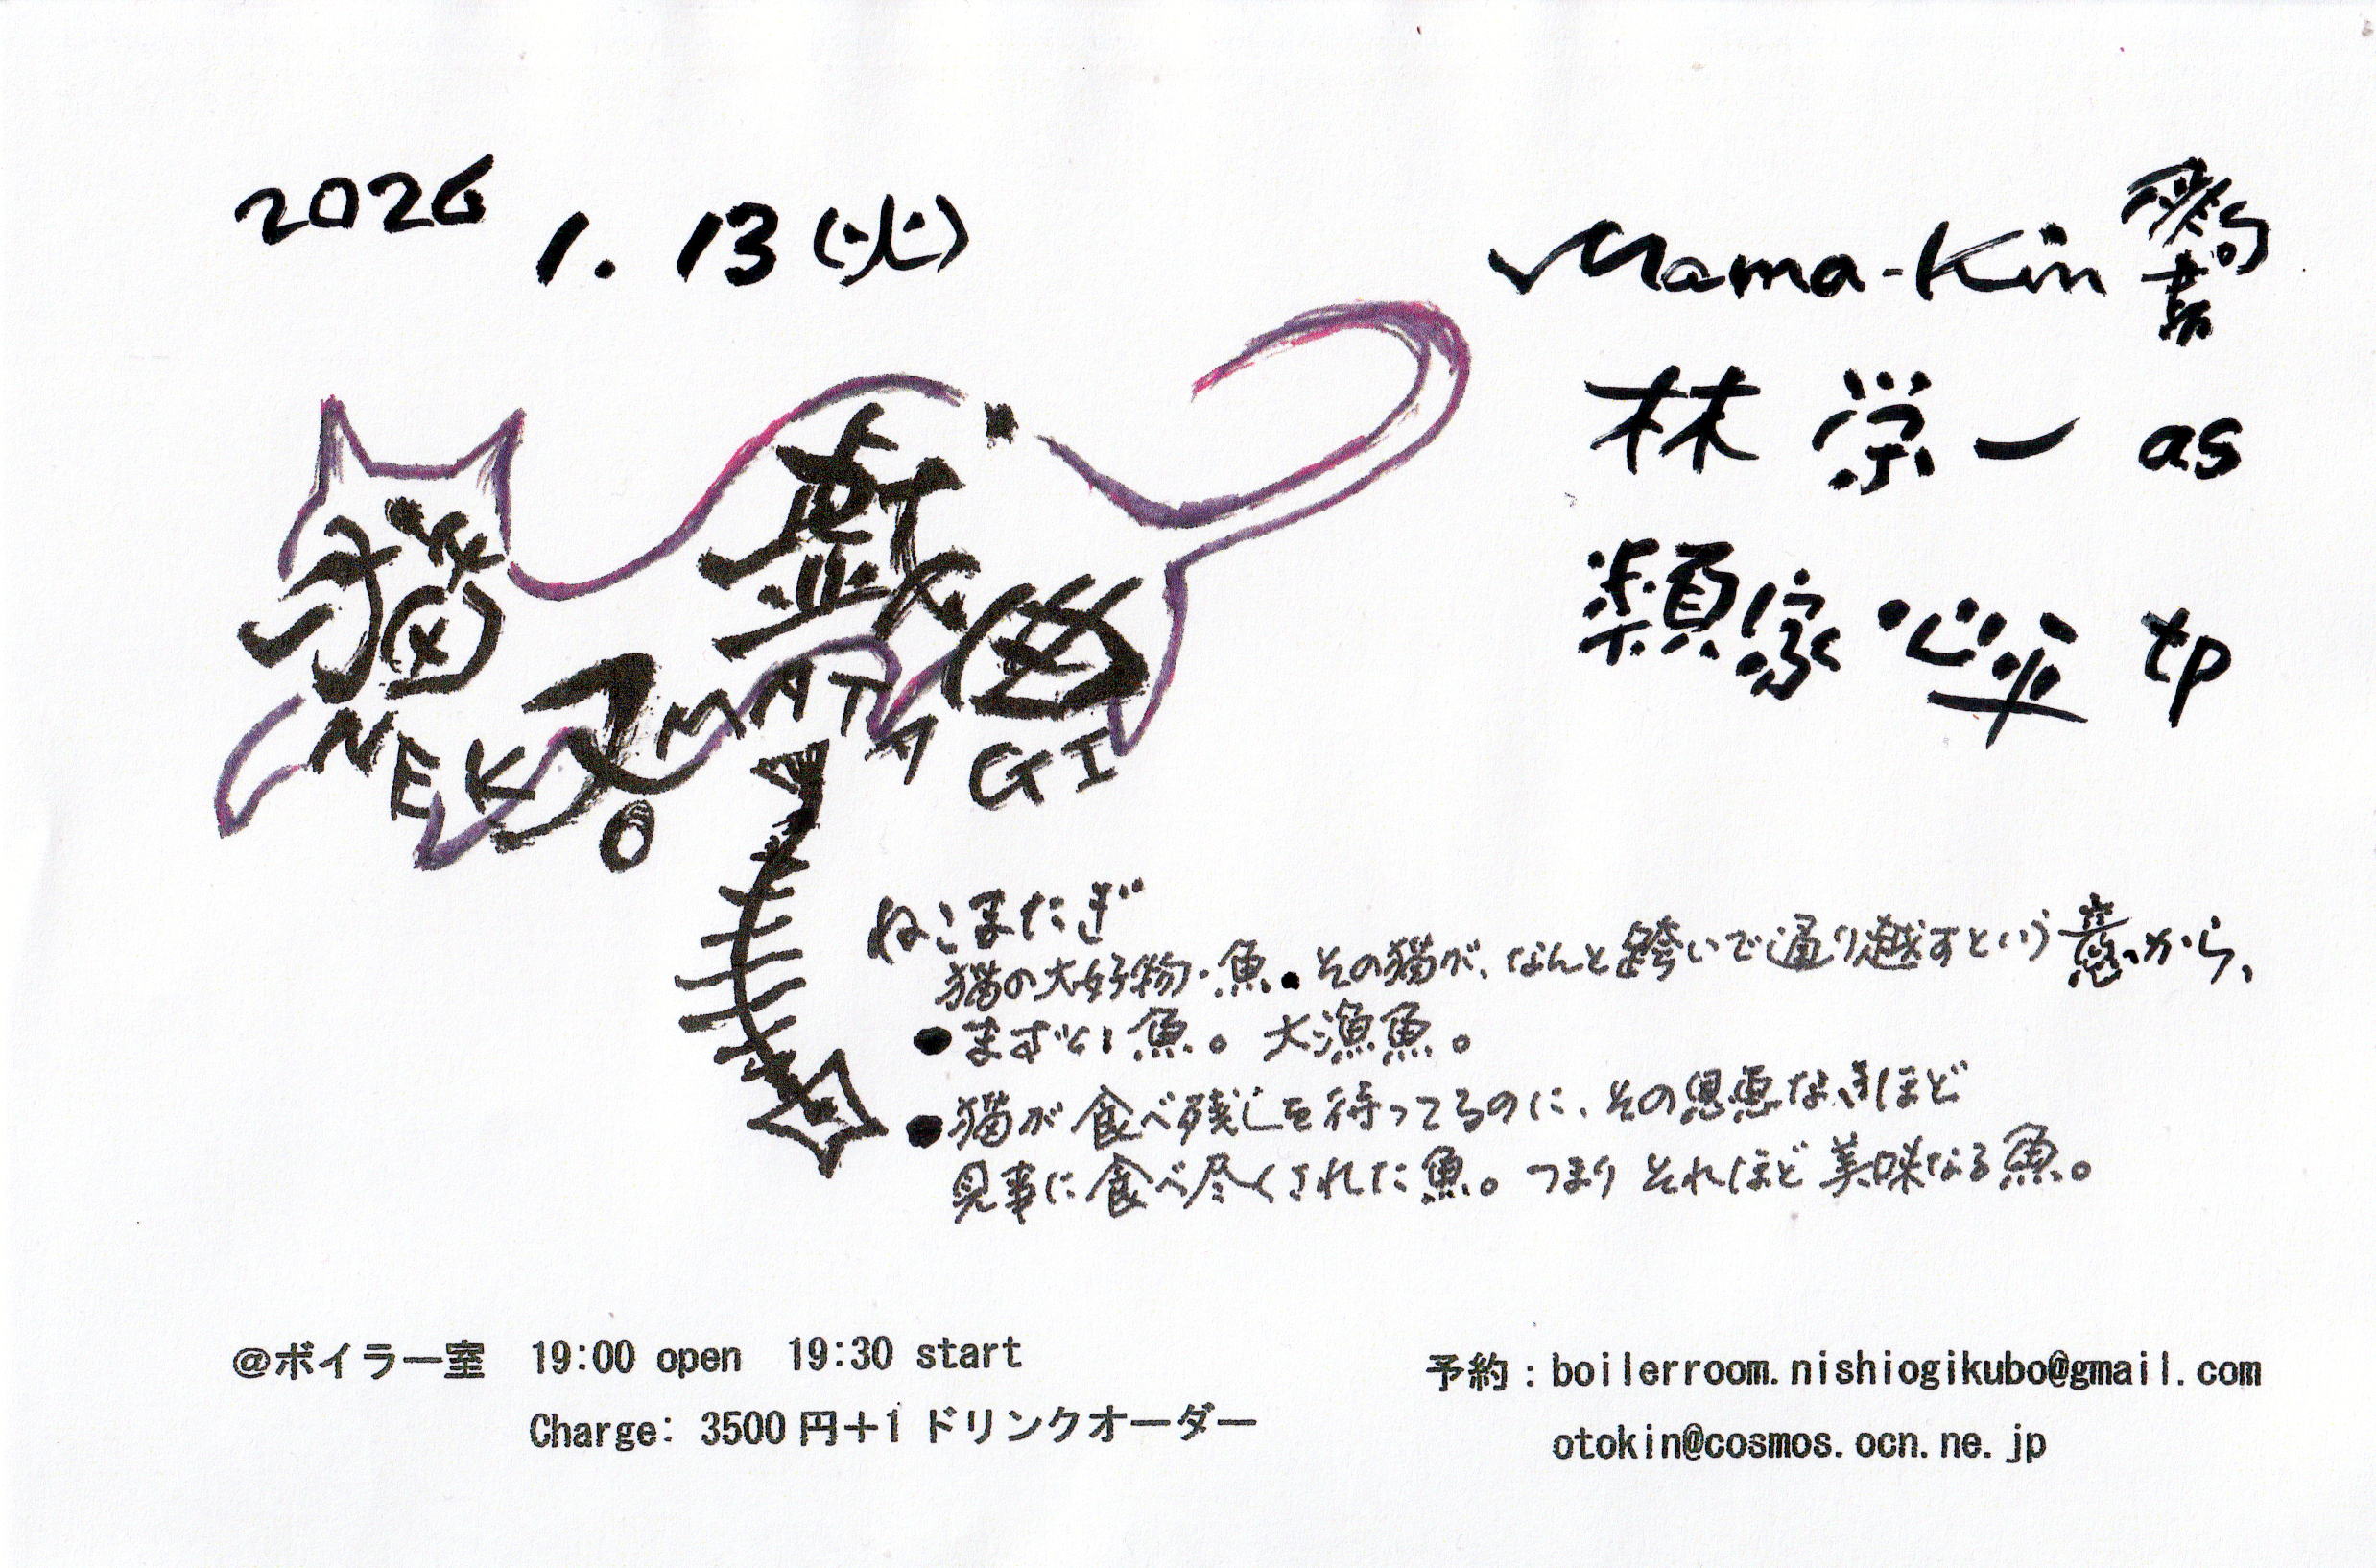 2026 1.13(火)
Mama-Kin
林 栄一 as
類家心平 tp
猫 又
NEKOMATAGI
ねこまたぎ
猫の大好物・魚。その猫が、なんと跨いで通り越すという意から、
●まずい魚。大漁魚。
●猫が食べ残しを待ってるのに、その恩恵なきほど
見事に食べ尽くされた魚。つまりそれほど美味なる魚。
@ボイラー室 19:00 open 19:30 start
Charge: 3500円＋1ドリンクオーダー
予約：boilerroom.nishiogikubo@gmail.com
otokin@cosmos.ocn.ne.jp